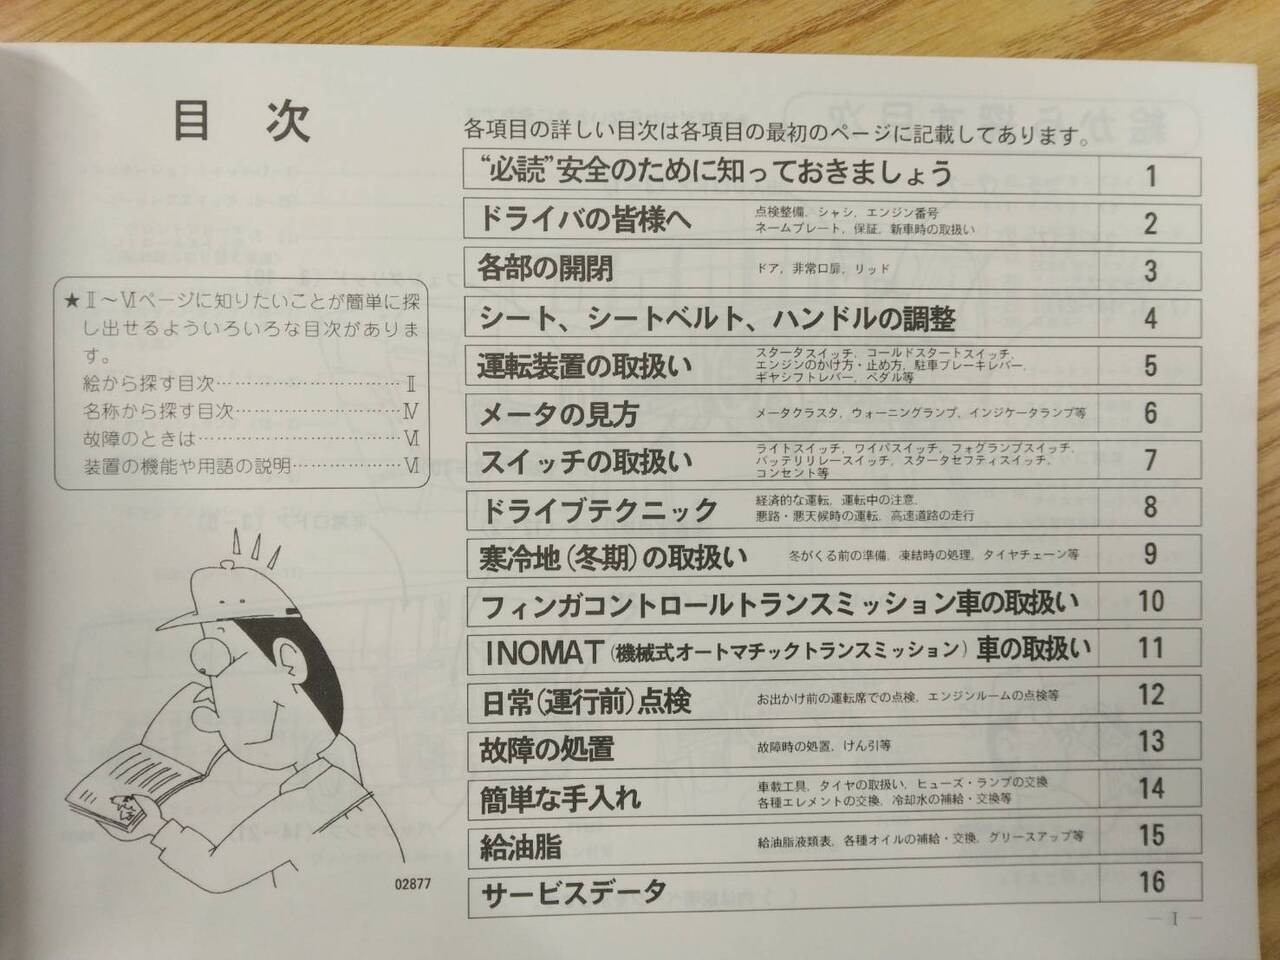 目 次
★Ⅱ～Ⅵページに知りたいことが簡単に探
し出せるよういろいろな目次がありま
す。
絵から探す目次……………………Ⅱ
名称から探す目次…………………Ⅳ
故障のときは………………………Ⅵ
装置の機能や用語の説明…………Ⅵ
02877
各項目の詳しい目次は各項目の最初のページに記載してあります。
“必読”安全のために知っておきましょう 1
ドライバの皆様へ 点検整備，シャシ，エンジン番号 2
ネームプレート，保証，新車時の取扱い
各部の開閉 ドア，非常口扉，リッド 3
シート、シートベルト、ハンドルの調整 4
運転装置の取扱い スタータスイッチ，コールドスタートスイッチ， 5
エンジンのかけ方・止め方，駐車ブレーキレバー，
ギヤシフトレバー，ペダル等
メータの見方 メータクラスタ，ウォーニングランプ，インジケータランプ等 6
スイッチの取扱い ライトスイッチ，ワイパスイッチ，フォグランプスイッチ， 7
バッテリリレースイッチ，スタータセフティスイッチ，
コンセント等
ドライブテクニック 経済的な運転，運転中の注意， 8
悪路・悪天候時の運転，高速道路の走行
寒冷地(冬期)の取扱い 冬がくる前の準備，凍結時の処理，タイヤチェーン等 9
フィンガコントロールトランスミッション車の取扱い 10
INOMAT(機械式オートマチックトランスミッション)車の取扱い 11
日常(運行前)点検 お出かけ前の運転席での点検，エンジンルームの点検等 12
故障の処置 故障時の処置，けん引等 13
簡単な手入れ 車載工具，タイヤの取扱い，ヒューズ・ランプの交換 14
各種エレメントの交換，冷却水の補給・交換等
給油脂 給油脂液類表，各種オイルの補給・交換，グリースアップ等 15
サービスデータ 16
― Ⅰ ―